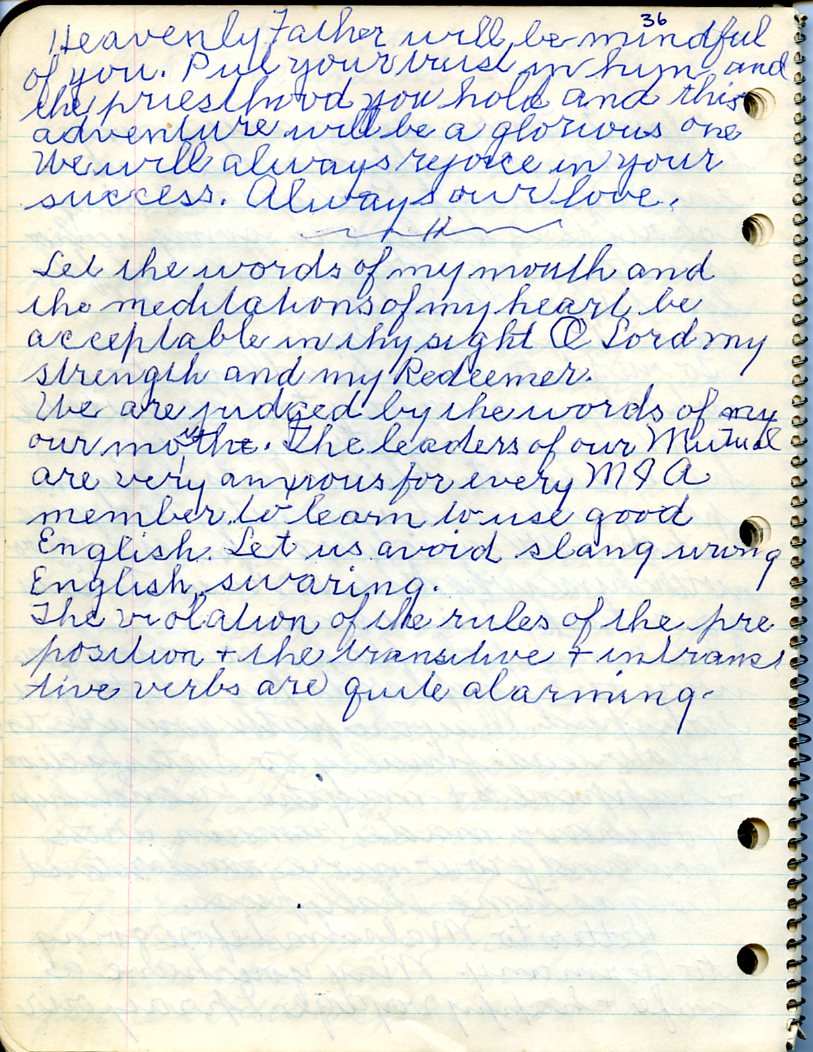 36
Heavenly Father will be mindful
of you. Put your trust in hym and
the priesthood you hold and this
adventure will be a glorious one
We will always rejoice in your
success. Always our love.
Let the words of my mouth and
the meditations of my heart be
acceptable in thy sight O Lord my
strength and my Redeemer.
We are judged by the words of my
our mouthe. The leaders of our Mutual
are very anxious for every M I A
member to learn to use good
English. Let us avoid slang wrong
English, swaring.
The violation of the rules of the pre
position + the transitive + intransi
tive verbs are quite alarming.